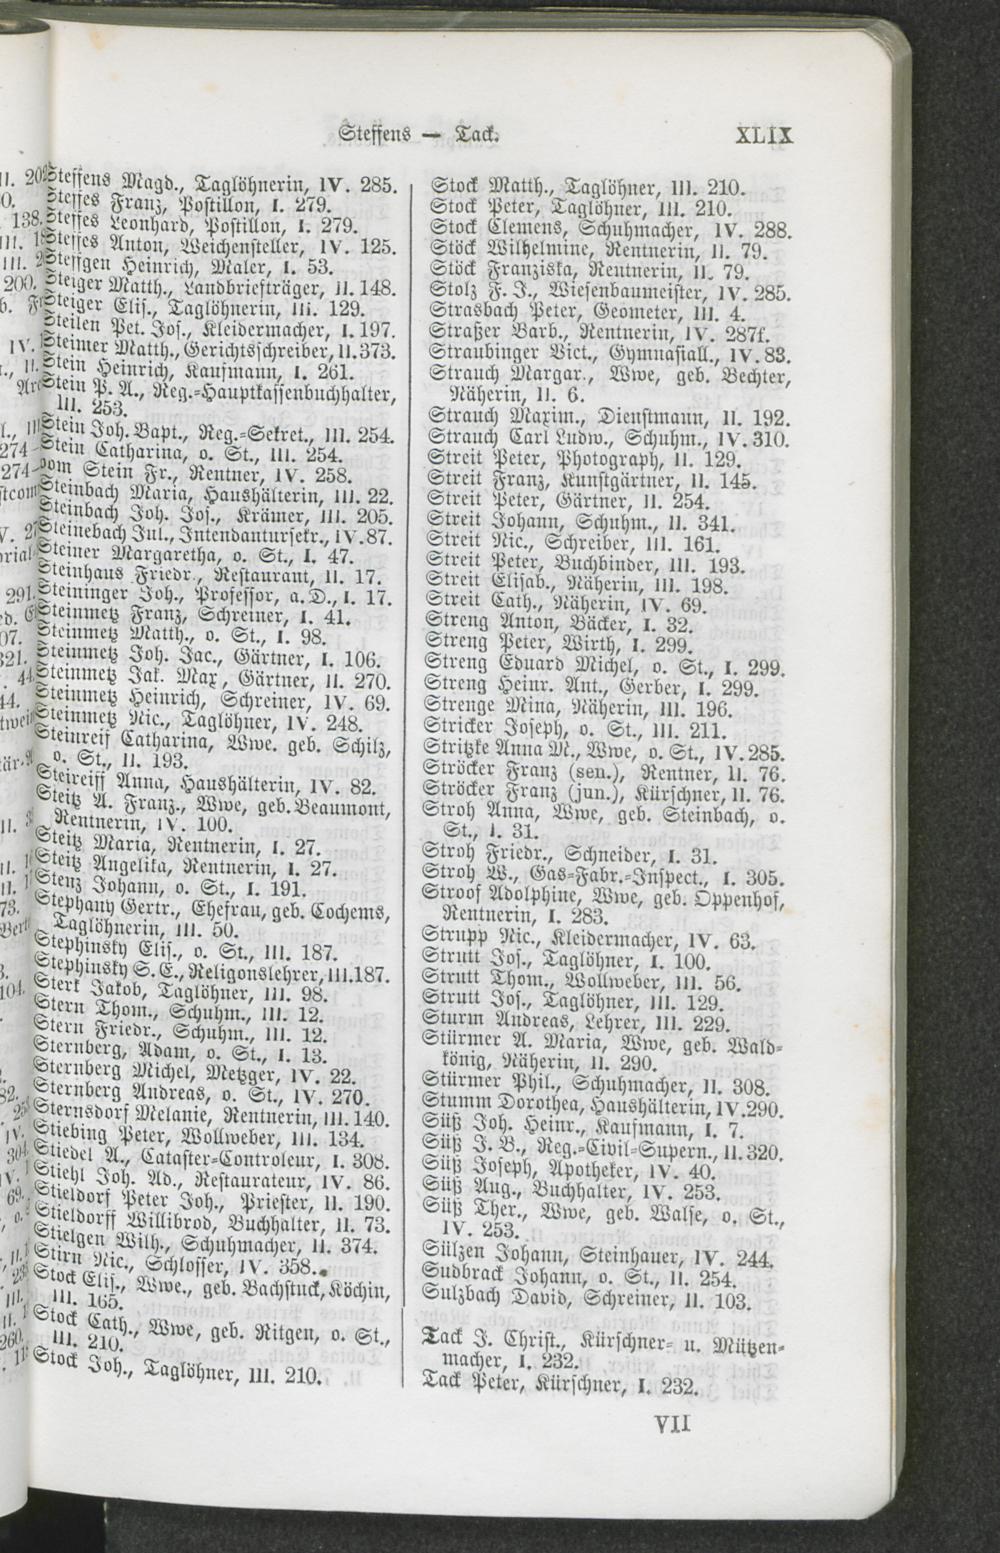 Steffens — Tack.
XLIX
Steffens Magd., Taglöhnerin, IV. 285.
Steffes Franz, Postillon, I. 279.
Steffes Leonhard, Postillon, I. 279.
Steffes Anton, Weichensteller, IV. 125.
Steffgen Heinrich, Maler, I. 53.
Steiger Matth., Landbriefträger, II. 148.
Steiger Elis., Taglöhnerin, III. 129.
Steilen Pet. Jos., Kleidermacher, I. 197.
Steimer Matth., Gerichtsschreiber, II. 373.
Stein Heinrich, Kaufmann, I. 261.
Stein P. A., Reg.-Hauptkassenbuchhalter,
III. 253.
Stein Joh. Bapt., Reg.-Sekret., III. 254.
Stein Catharina, o. St., III. 254.
vom Stein Fr., Rentner, IV. 258.
Steinbach Maria, Haushälterin, III. 22.
Steinbach Joh. Jos., Krämer, III. 205.
Steinebach Jul., Intendantursekr., IV. 87.
Steiner Margaretha, o. St., I. 47.
Steinhaus Friedr., Restaurant, II. 17.
Steininger Joh., Professor, a. D., I. 17.
Steinmetz Franz, Schreiner, I. 41.
Steinmetz Matth., o. St., I. 98.
Steinmetz Joh. Jac., Gärtner, I. 106.
Steinmetz Jak. Max, Gärtner, II. 270.
Steinmetz Heinrich, Schreiner, IV. 69.
Steinmetz Nic., Taglöhner, IV. 248.
Steinreif Catharina, Wwe. geb. Schilz,
o. St., II. 193.
Steireiff Anna, Haushälterin, IV. 82.
Steitz A. Franz., Wwe, geb. Beaumont,
Rentnerin, IV. 100.
Steitz Maria, Rentnerin, I. 27.
Steitz Angelika, Rentnerin, I. 27.
Stenz Johann, o. St., I. 191.
Stephany Gertr., Ehefrau, geb. Cochems,
Taglöhnerin, III. 50.
Stephinsky Elis., o. St., III. 187.
Stephinsky S. E., Religonslehrer, III. 187.
Sterk Jakob, Taglöhner, III. 98.
Stern Thom., Schuhm., III. 12.
Stern Friedr., Schuhm., III. 12.
Sternberg, Adam, o. St., I. 13.
Sternberg Michel, Metzger, IV. 22.
Sternberg Andreas, o. St., IV. 270.
Sternsdorf Melanie, Rentnerin, III. 140.
Stiebing Peter, Wollweber, III. 134.
Stiedel A., Cataster-Controleur, I. 308.
Stiehl Joh. Ad., Restaurateur, IV. 86.
Stieldorf Peter Joh., Priester, II. 190.
Stieldorff Willibrod, Buchhalter, II. 73.
Stielgen Wilh., Schuhmacher, II. 374.
Stirn Nic., Schlosser, IV. 358.
Stock Elis., Wwe., geb. Bachstuck, Köchin,
III. 165.
Stock Cath., Wwe, geb. Ritgen, o. St.,
III. 210.
Stock Joh., Taglöhner, III. 210.
Stock Matth., Taglöhner, III. 210.
Stock Peter, Taglöhner, III. 210.
Stock Clemens, Schuhmacher, IV. 288.
Stöck Wilhelmine, Rentnerin, II. 79.
Stöck Franziska, Rentnerin, II. 79.
Stolz F. J., Wiesenbaumeister, IV. 285.
Strasbach Peter, Geometer, III. 4.
Straßer Barb., Rentnerin, IV. 287f.
Straubinger Vict., Gymnasiall., IV. 83.
Strauch Margar., Wwe, geb. Bechter,
Näherin, II. 6.
Strauch Maxim., Dienstmann, II. 192.
Strauch Carl Ludw., Schuhm., IV. 310.
Streit Peter, Photograph, II. 129.
Streit Franz, Kunstgärtner, II. 145.
Streit Peter, Gärtner, II. 254.
Streit Johann, Schuhm., II. 341.
Streit Nic., Schreiber, III. 161.
Streit Peter, Buchbinder, III. 193.
Streit Elisab., Näherin, III. 198.
Streit Cath., Näherin, IV. 69.
Streng Anton, Bäcker, I. 32.
Streng Peter, Wirth, I. 299.
Streng Eduard Michel, o. St., I. 299.
Streng Heinr. Ant., Gerber, I. 299.
Strenge Mina, Näherin, III. 196.
Stricker Joseph, o. St., III. 211.
Stritzke Anna M., Wwe, o. St., IV. 285.
Ströcker Franz (sen.), Rentner, II. 76.
Ströcker Franz (jun.), Kürschner, II. 76.
Stroh Anna, Wwe, geb. Steinbach, o.
St., I. 31.
Stroh Friedr., Schneider, I. 31.
Stroh W., Gas-Fabr.-Inspect., I. 305.
Stroof Adolphine, Wwe, geb. Oppenhof,
Rentnerin, I. 283.
Strupp Nic., Kleidermacher, IV. 63.
Strutt Jos., Taglöhner, I. 100.
Strutt Thom., Wollweber, III. 56.
Strutt Jos., Taglöhner, III. 129.
Sturm Andreas, Lehrer, III. 229.
Stürmer A. Maria, Wwe, geb. Wald-
könig, Näherin, II. 290.
Stürmer Phil., Schuhmacher, II. 308.
Stumm Dorothea, Haushälterin, IV. 290.
Süß Joh. Heinr., Kaufmann, I. 7.
Süß J. B., Reg.-Civil-Supern., II. 320.
Süß Joseph, Apotheker, IV. 40.
Süß Aug., Buchhalter, IV. 253.
Süß Ther., Wwe, geb. Walse, o. St.,
IV. 253.
Sülzen Johann, Steinhauer, IV. 244.
Sudbrack Johann, o. St., II. 254.
Sulzbach David, Schreiner, II. 103.
Tack J. Christ., Kürschner- u. Mützen-
macher, I. 232.
Tack Peter, Kürschner, I. 232.
VII